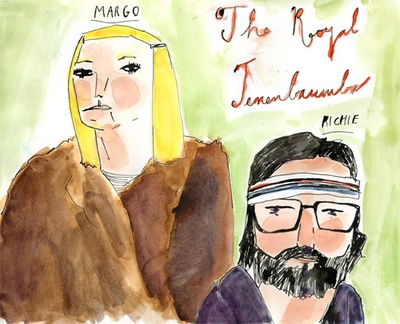 MARGO
The Royal
Tenenbaumbs
RICHIE